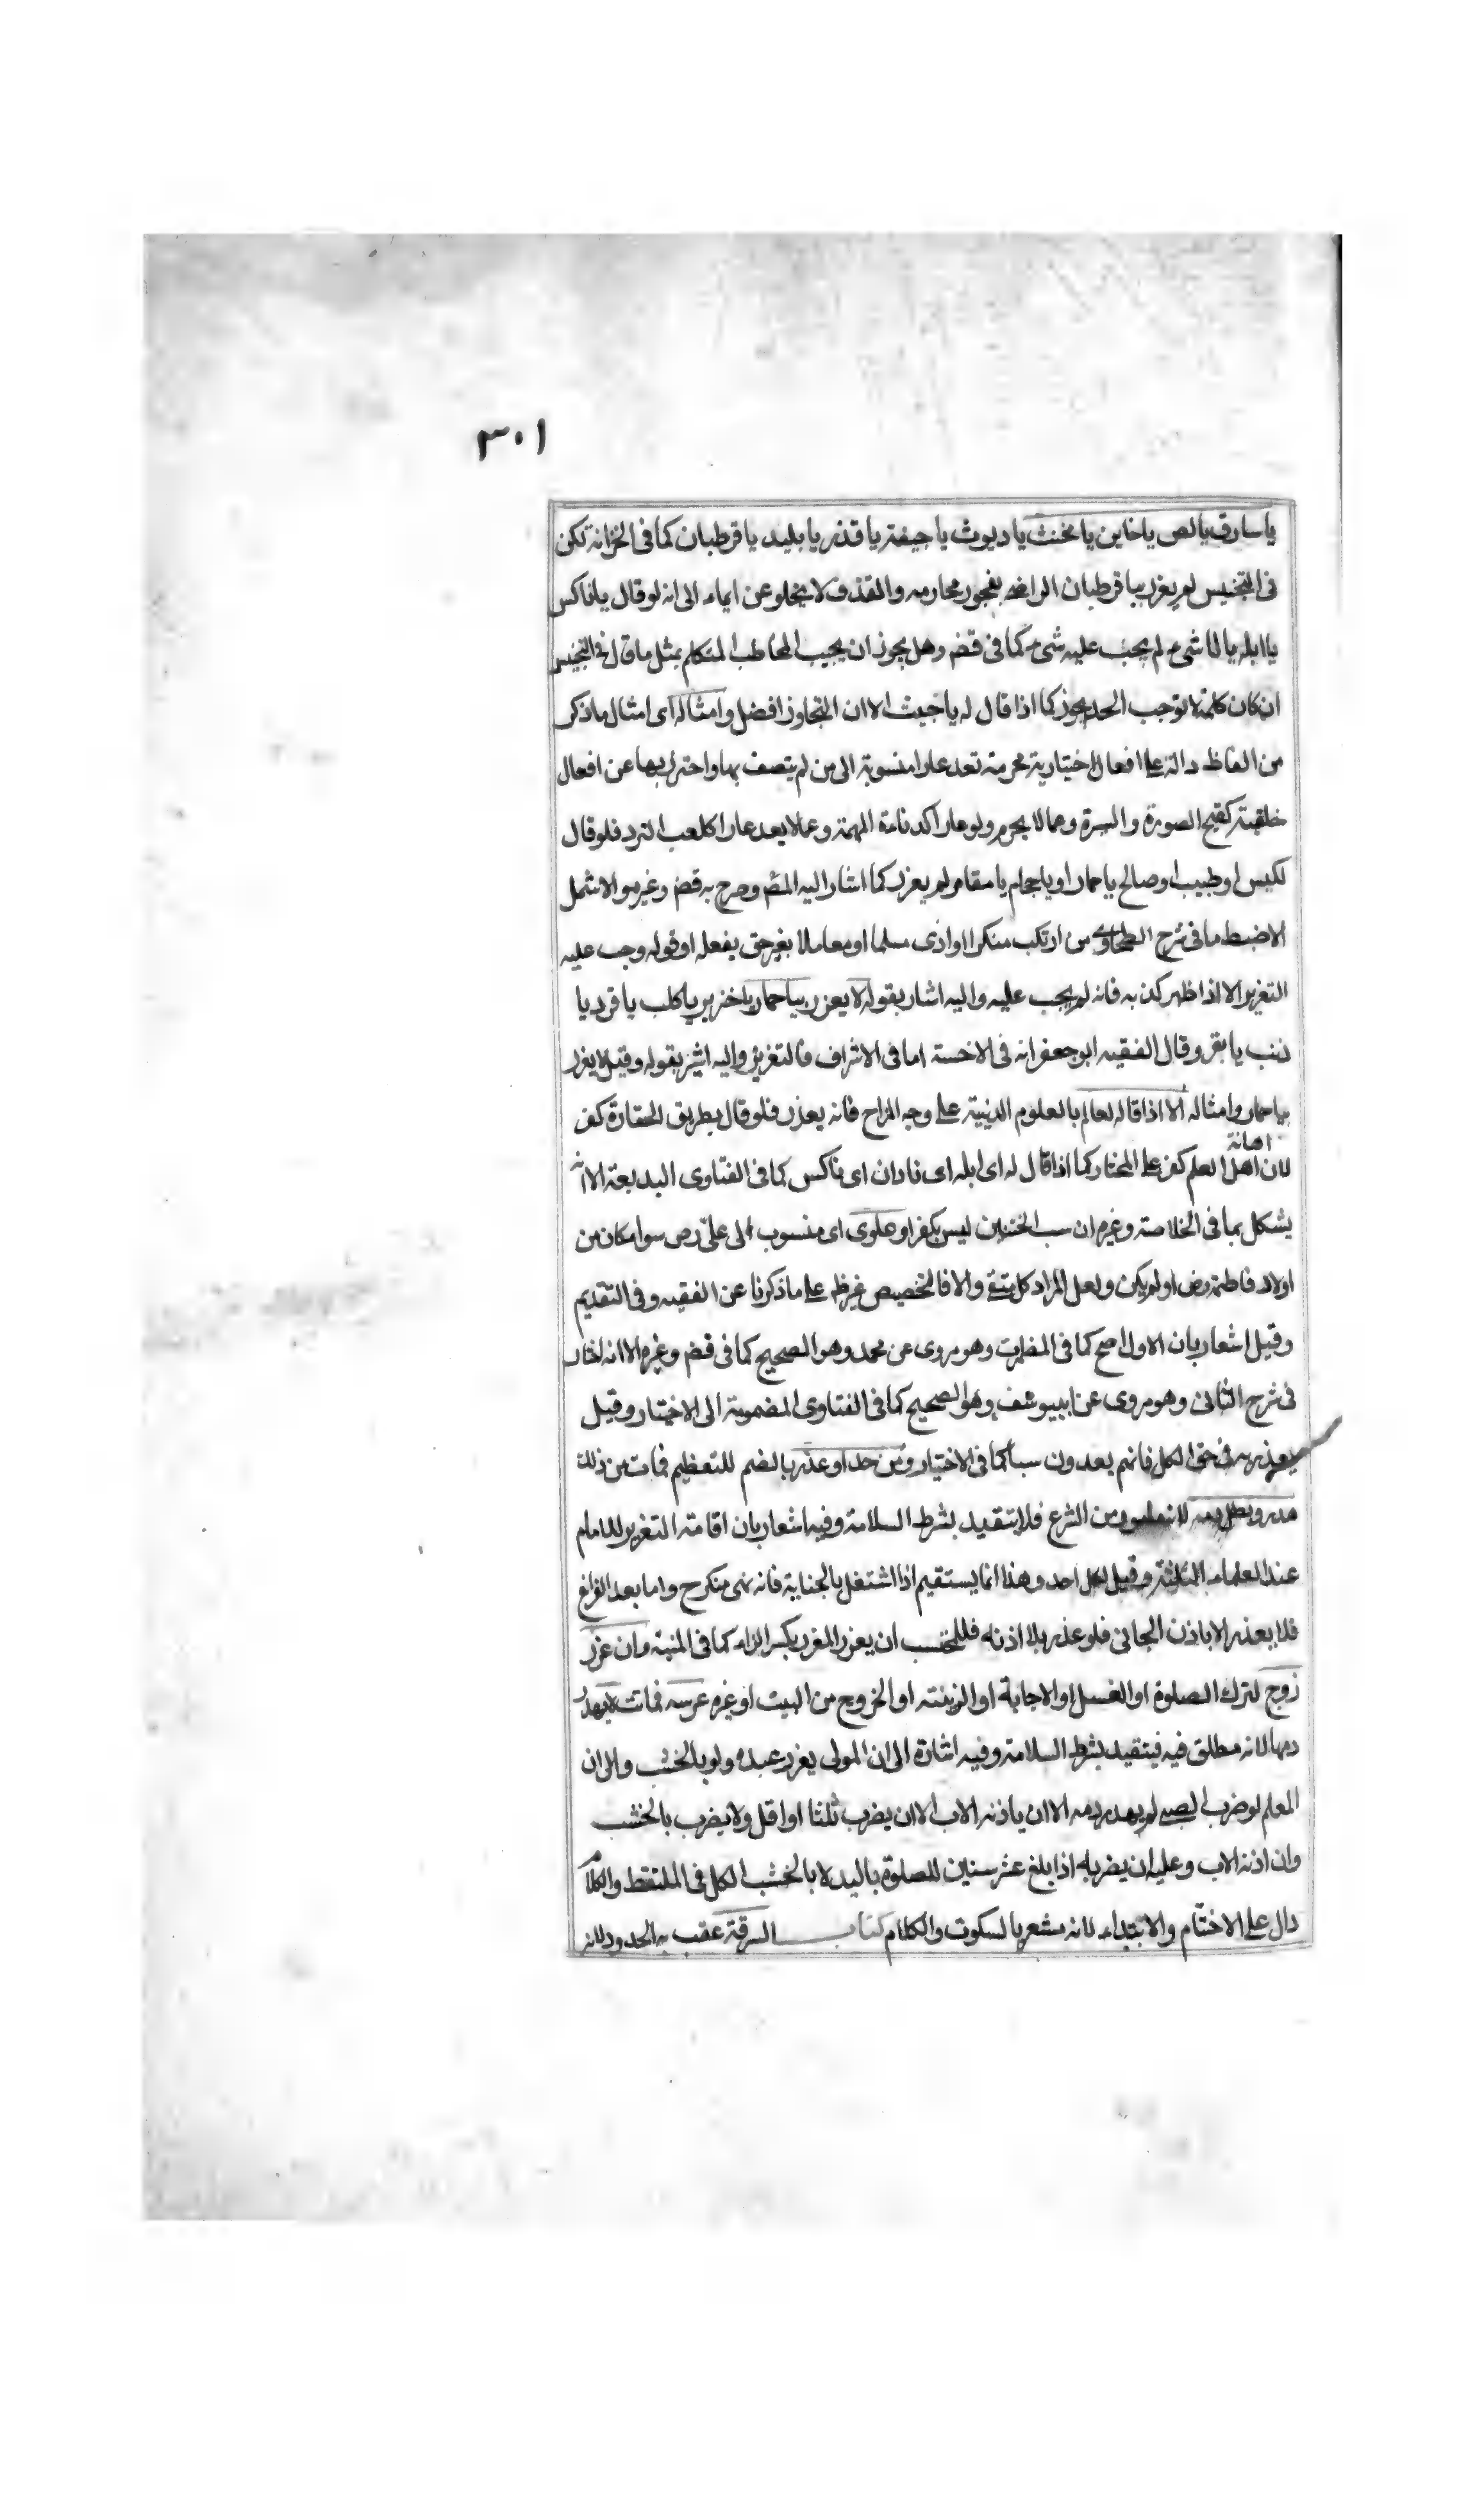 ٣٠١
يا سارق يا لص يا خاين يا مخنث يا ديوث يا جيفة يا قذر يا بليد يا قرطبان كما في الخزانة لكن
في التجنيس لم يعزر بيا قرطبان الراضي بفجور محارمه والقذف لا يخلو عن ايماء الى انه لو قال يا ناكس
يا ابله يا لا شيء لم يجب عليه شيء كما في قضـ وهل يجوز ان يجيب المخاطب المتكلم بمثل ما قال في التجنيس
ان كان كلمة لا توجب الحد يجوز كما اذا قال له يا خبيث الا ان التجاوز افضل وامثاله اى امثال ما ذكر
من الفاظ دالة على افعال اختيارية محرمة تعد عارا منسوبة الى من لم يتصف بها واحترز بها عن افعال
خلقية كقبح الصورة و السيرة وعما لا يحرم ولو عارا كدناءة الهمة وعما لا يعد عارا كلعب النرد فلو قال
لكيس او طبيب او صالح يا حمار او يا حجام يا مقامر لم يعزر كما اشار اليه المصـ وصرح به قضـ وغيره والاشمل
الاضبط ما في شرح الطحاوى من ارتكب منكرا او اذى مسلما او معاملا بغير حق بفعله او قوله وجب عليه
التعزير الا اذا ظهر كذبه فانه لم يجب عليه واليه اشار بقوله لا يعزر بيا حمار يا خنزير يا كلب يا قرد يا
ذئب يا بقر وقال الفقيه ابو جعفر انه في الاخسة اما في الاشراف فالتعزير واليه اشير بقوله وقيل لا يعزر
بيا حمار وامثاله الا اذا قاله لعالم بالعلوم الدينية على وجه المزاح فانه يعذر فلو قال بطريق الحقارة كفر
لان اهانة اهل العلم كفر على المختار كما اذا قال له اى ابله اى نادان اى ناكس كما في الفتاوى البديعة الا انه
يشكل بما في الخلاصة وغيره ان سب الختنين ليس بكفر او علوى اى منسوب الى علي رض سوا كان من
اولاد فاطمة رض او لم يكن ولعل المراد كل متقى والا فالتخصيص غير ظـ على ما ذكرنا عن الفقيه وفي التقديم
وقيل اشعار بان الاول اصح كما في المضمرات وهو مروى عن محمد وهو الصحيح كما في قضـ وغيره الا انه اختار
في شرح الثاني وهو مروى عن ابييوسف وهو الصحيح كما في الفتاوى المضمومة الى الاختيار وقيل
يعذر به في حق الكل فانهم يعدون سبا كما في الاختيار ومن حد او عذر بالضم للتعظيم فمات من ذلك
هدر وبطل دمه لانه مامور من الشرع فلا يتقيد بشرط السلامة وفيه اشعار بان اقامة التعزير للامام
عند العلماء الثلثة وقيل لكل احد وهذا انما يستقيم اذا اشتغل بالجناية فانه نهى منكر ح واما بعد الفراغ
فلا يعذر الا باذن الجاني فلو عذر بلا اذنه فللمحتسب ان يعزر المعزر بكسر الزاء كما في المنية وان عزر
زوج لترك الصلوة او الغسل او الاجابة او الزينة او الخروج من البيت او غيره عرسه فماتت لا يهدر
دمها لانه مطلق فيه فيتقيد بشرط السلامة وفيه اشارة الى ان المولى يعزر عبده ولو بالخشب والى ان
المعلم لو ضرب الصبى لم يهدر دمه الا ان ياذنه الاب الا ان يضرب ثلثا او اقل ولا يضرب بالخشب
وان اذنه الاب وعليه ان يضربه اذا بلغ عشر سنين للصلوة باليد لا بالخشب الكل في الملتقط والكلام
دال على الاختتام والابتداء لانه مشعر بالسكوت والكلام كتاب السرقة عقب به الحدود لانه